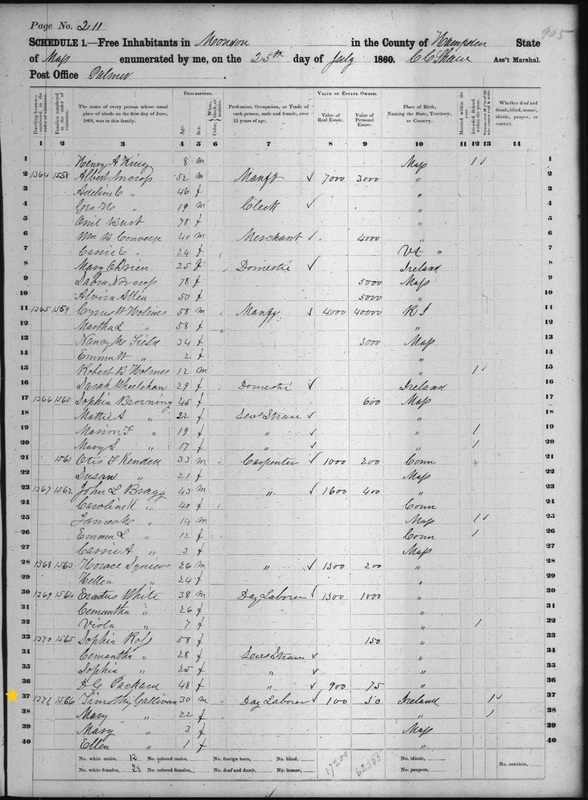 Page No. 211
905
SCHEDULE 1.—Free Inhabitants in Monson in the County of Hampden State
of Mass enumerated by me, on the 25th day of July 1860. C C Shaw Ass't Marshal.
Post Office Palmer
DESCRIPTION. VALUE OF ESTATE OWNED.
The name of every person whose usual place of abode on the first day of June, 1860, was in this family.
Age. Sex.
Profession, Occupation, or Trade of each person, male and female, over 15 years of age.
Value of Real Estate. Value of Personal Estate.
Place of Birth, Naming the State, Territory, or Country.
Whether deaf and dumb, blind, insane, idiotic, pauper, or convict.
1 2 3 4 5 6 7 8 9 10 11 12 13 14
1 Henry A King 8 m Mass 1 1
2 1364 1558 Albert Norcross 52 m Manft 7000 3000 " 2
3 Adeline C " 46 f " 3
4 Geo H " 19 m Clerk " 4
5 Burt 78 f " 5
6 Wm B Converse 40 m Merchant 4000 " 6
7 Carrie E " 24 f Vt " 7
8 Mary O'Brien 25 f Domestic Ireland 8
9 Norcross 78 f 5000 Mass 9
10 Alvira Allen 50 f 5000 " 10
11 1365 1559 Cyrus W Holmes 58 m Manft 4000 40000 R I 11
12 Martha L " 58 f " 12
13 Nancy M Field 34 f 3000 Mass 13
14 Emma W " 2 f " 14
15 Robert B Holmes 12 m " 1 15
16 Sarah Wheelehan 29 f Domestic Ireland 16
17 1366 1560 Sophia Browning 45 f 600 Mass 17
18 Mattie A " 22 f Sews Straw " 18
19 Marion F " 19 f " " 1 19
20 Mary S " 17 f " " 1 20
21 1561 Otis F Kendell 33 m Carpenter 1000 200 Conn 21
22 Susan " 21 f Mass 22
23 1367 1562 John L Bragg 43 m " 1600 400 " 23
24 Caroline K " 40 f Conn 24
25 James M " 14 m Mass 1 25
26 Emma L " 12 f Conn 1 26
27 Carrie A " 3 f Mass 27
28 1368 1563 Horace Squier 26 m " 1300 200 " 28
29 Hellen " 24 f " 29
30 1369 1564 Erastus White 38 m Day Laborer 1300 1000 " 30
31 Cemantha " 26 f " 31
32 Viola " 7 f " 1 32
33 1370 1565 Sophia Ross 58 f 150 " 33
34 Cemantha " 28 f Sews Straw " 34
35 Sophia " 25 f " " 35
36 Packard 48 f " 900 75 " 36
37 1372 1566 Timothy Gallivan 30 m Day Laborer 100 50 Ireland 1 37
38 Mary " 22 f " 1 38
39 Mary " 3 f Mass 39
40 Ellen " 1 f " 40
No. white males, 12 No. colored males, No. foreign born, No. blind, 17200 No. idiotic, No. convicts,
No. white females, 28 No. colored females, No. deaf and dumb, No. insane, No. paupers,